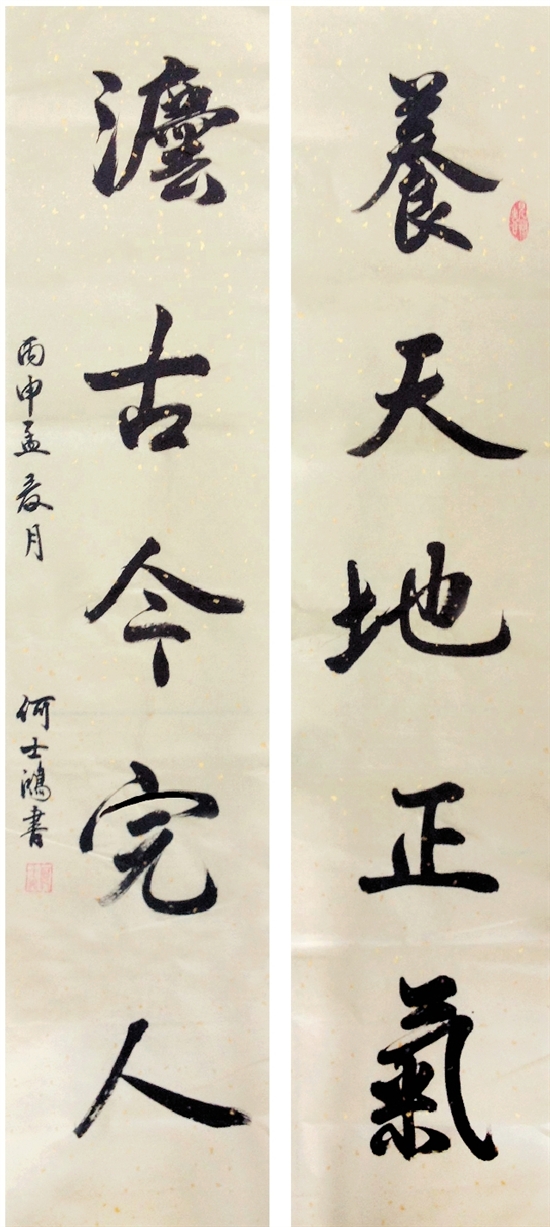 養天地正氣
灋古今完人
丙申孟夏月 何士鴻書